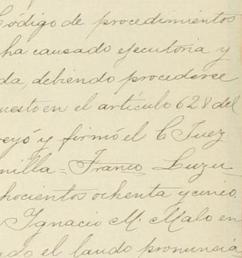 Código de procedimientos
ha causado ejecutoria y
da, debiendo procederse
uesto en el artículo 628 del
veyó y firmó el C. Juez
nilla - Franco - Luzu
hocientos ochenta y cinco.
Ignacio M. Malo en
do el laudo pronuncia